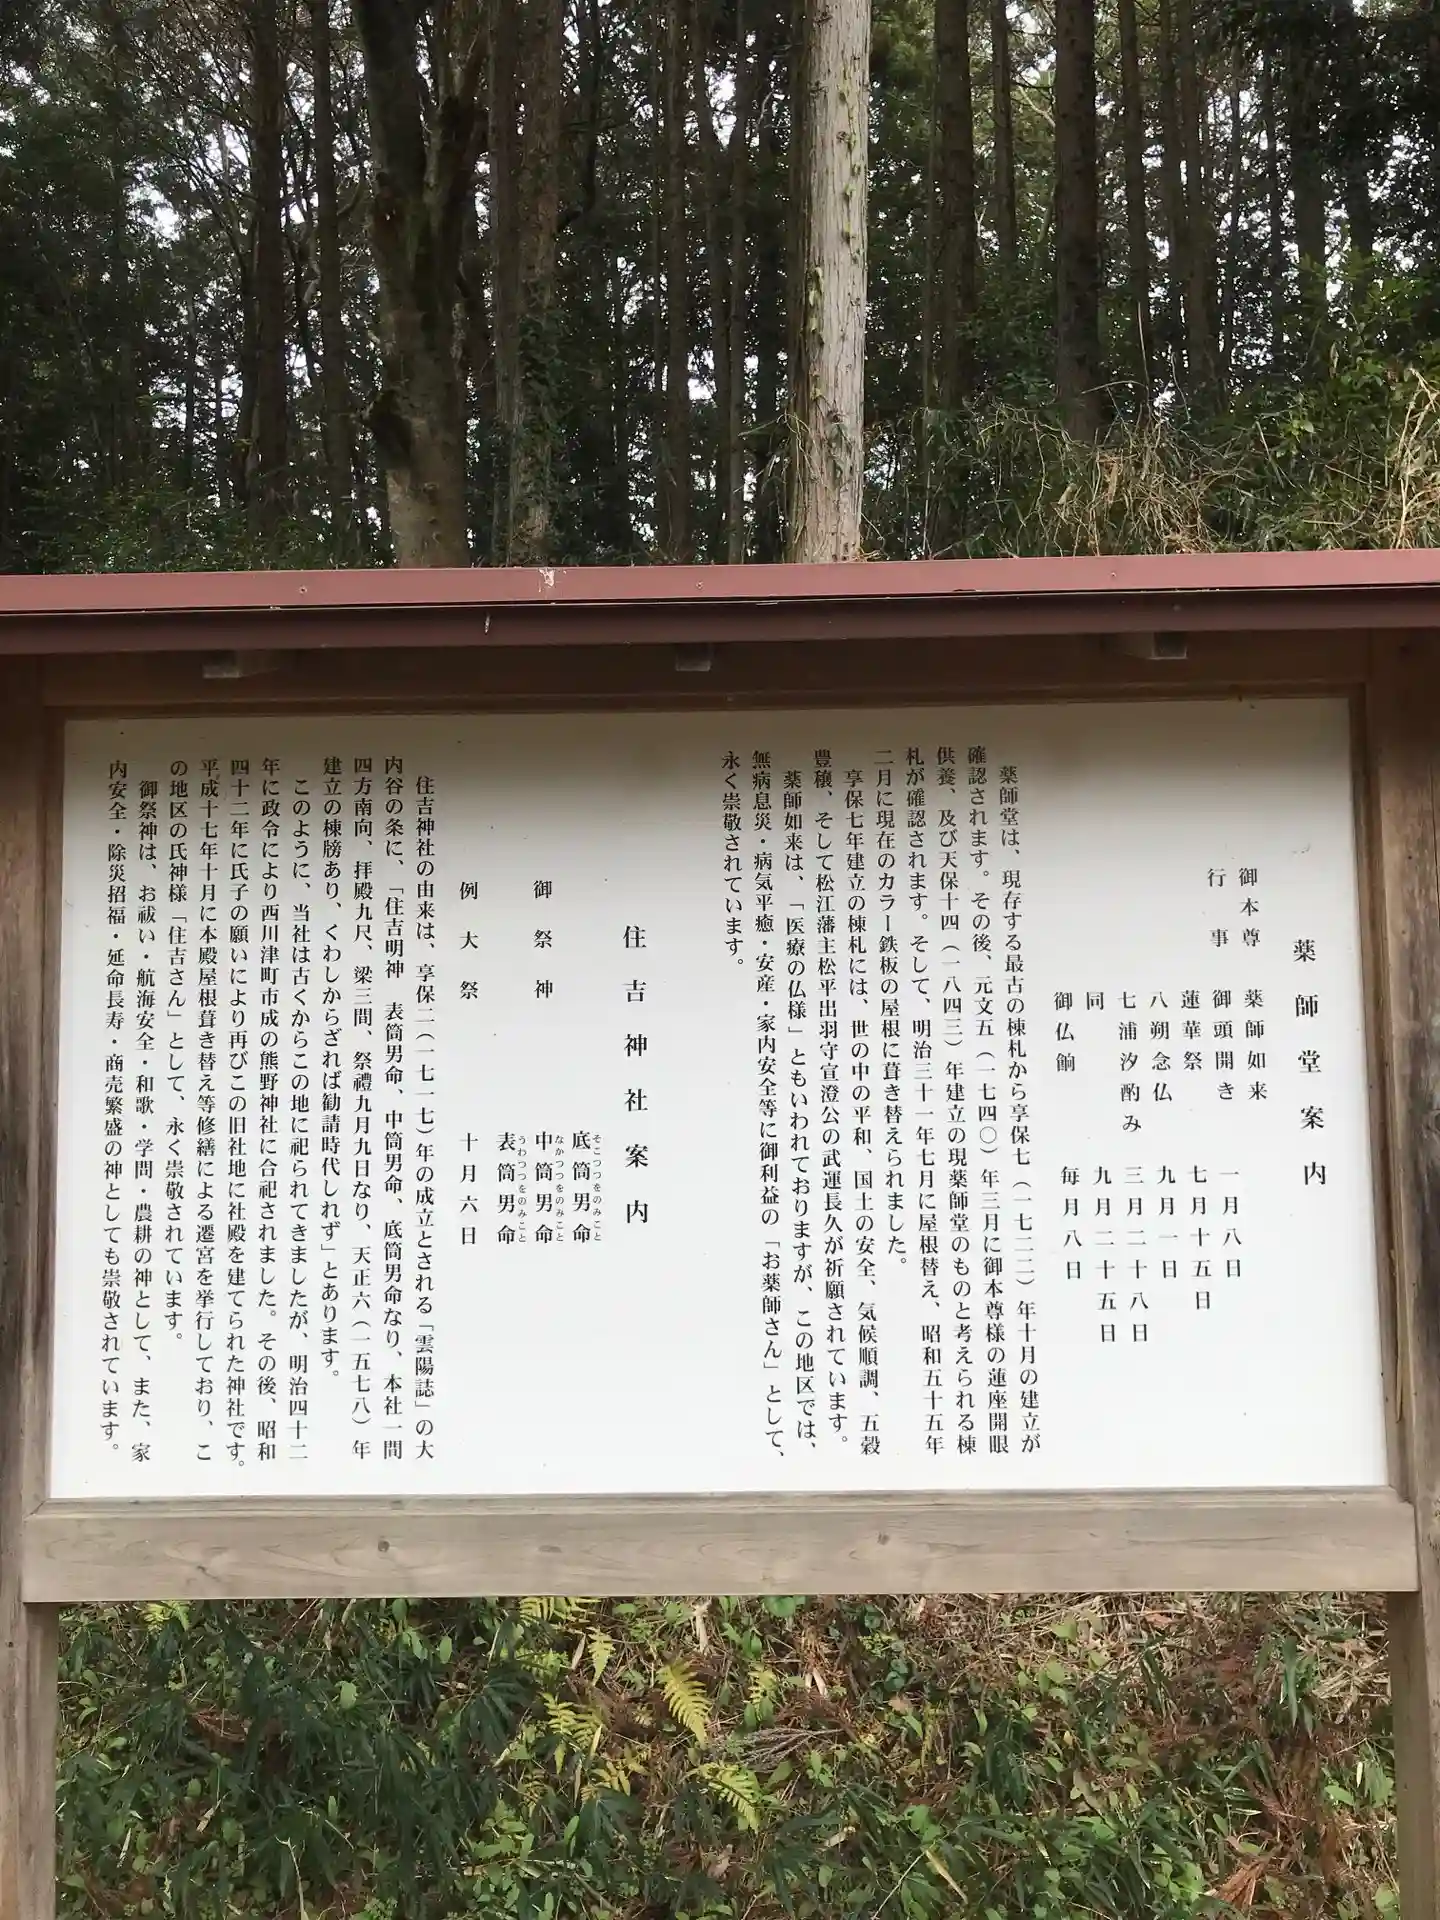 薬師堂案内
御本尊 薬師如来
行事 御頭開き 一月八日
蓮華祭 七月十五日
八朔念仏 九月一日
七浦汐酌み 三月二十八日
同 九月二十五日
御仏餉 毎月八日
薬師堂は、現存する最古の棟札から享保七（一七二二）年十月の建立が
確認されます。その後、元文五（一七四〇）年三月に御本尊様の蓮座開眼
供養、及び天保十四（一八四三）年建立の現薬師堂のものと考えられる棟
札が確認されます。そして、明治三十一年七月に屋根替え、昭和五十五年
二月に現在のカラー鉄板の屋根に葺き替えられました。
享保七年建立の棟札には、世の中の平和、国土の安全、気候順調、五穀
豊穣、そして松江藩主松平出羽守宣澄公の武運長久が祈願されています。
薬師如来は、「医療の仏様」ともいわれておりますが、この地区では、
無病息災・病気平癒・安産・家内安全等に御利益の「お薬師さん」として、
永く崇敬されています。
住吉神社案内
御祭神 底筒男命 そこつつをのみこと
中筒男命 なかつつをのみこと
表筒男命 うわつつをのみこと
例大祭 十月六日
住吉神社の由来は、享保二（一七一七）年の成立とされる「雲陽誌」の大
内谷の条に、「住吉明神 表筒男命、中筒男命、底筒男命なり、本社一間
四方南向、拝殿九尺、梁三間、祭禮九月九日なり、天正六（一五七八）年
建立の棟牓あり、くわしからざれば勧請時代しれず」とあります。
このように、当社は古くからこの地に祀られてきましたが、明治四十二
年に政令により西川津町市成の熊野神社に合祀されました。その後、昭和
四十二年に氏子の願いにより再びこの旧社地に社殿を建てられた神社です。
平成十七年十月に本殿屋根葺き替え等修繕による遷宮を挙行しており、こ
の地区の氏神様「住吉さん」として、永く崇敬されています。
御祭神は、お祓い・航海安全・和歌・学問・農耕の神として、また、家
内安全・除災招福・延命長寿・商売繁盛の神としても崇敬されています。